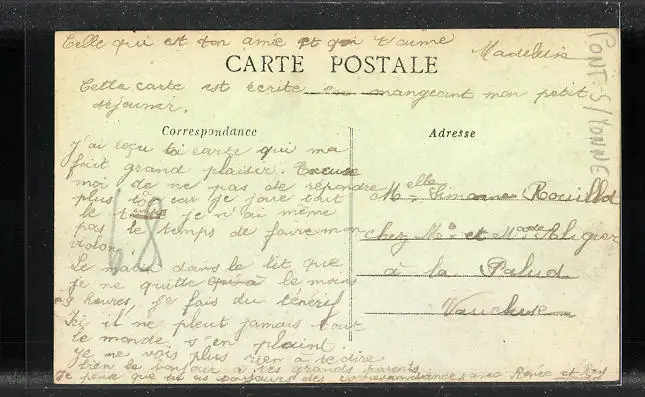 Celle qui est ton amie et qui t'aime
Madeleine
CARTE POSTALE
Cette carte est écrite en mangeant mon petit
déjeuner.
Correspondance
J'ai reçu ta carte qui ma
fait grand plaisir. Excuse
moi de ne pas de répondre
plus tôt car je joue tout
le temps je n'ai même
pas le temps de faire mon
violon.
Le matin dans le lit que
je ne quitte qu'à le moins
9 heures, je fais du ténérif
Ici il ne pleut jamais tout
le monde s'en plaint.
Je ne vois plus rien à te dire
bien le bonjour à tes grands parents
Je pense que tu as toujours des correspondances avec Renée et
68
Adresse
Melle Simonne Rouillod
chez Mr et Mme Aligier
à la Palud
Vaucluse
PONT-S/YONNE